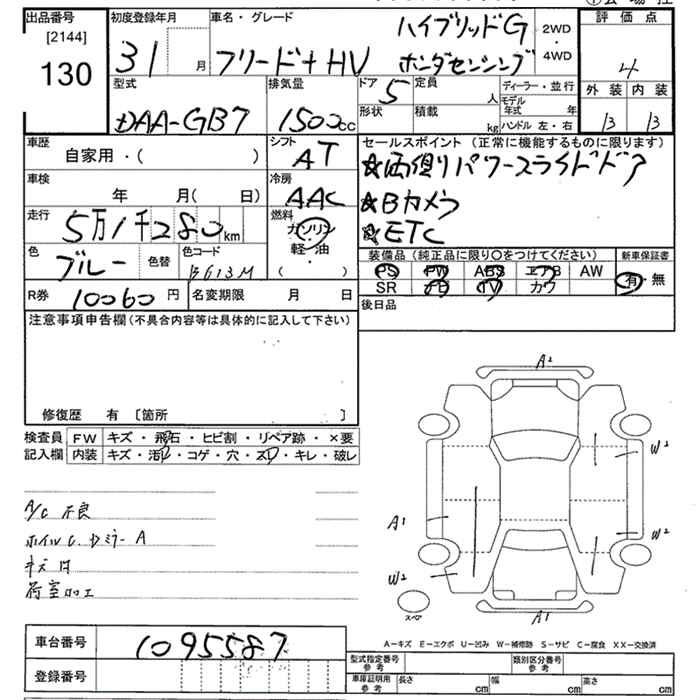 出品番号 [2144] 130
初度登録年月 31 月
車名・グレード フリード+HV ハイブリッドG ホンダセンシング
2WD・4WD
評価点 4
外装 内装
B B
型式 DAA-GB7
排気量 1500cc
ドア 5 定員 人
形状 積載 kg
ディーラー・並行
モデル年式 年
ハンドル 左・右
車歴 自家用・( )
シフト AT
セールスポイント(正常に機能するものに限ります)
★両側パワースライドドア
★Bカメラ
★ETC
車検 年 月( 日)
冷房 AAC
走行 5万1千280km
燃料 ガソリン・軽油
色 ブルー 色替 色コード B613M
装備品(純正品に限り○をつけてください)
PS PW ABS エアB AW
SR PD TV カワ
新車保証書 有・無
R券 10060円 名変期限 月 日
後日品
注意事項申告欄(不具合内容等は具体的に記入して下さい)
修復歴 有 〔箇所 〕
検査員記入欄 FW キズ・飛石・ヒビ割・リペア跡・×要
内装 キズ・汚レ・コゲ・穴・スレ・キレ・破レ
A/C 不良
ホイルC.Dミラー A
キズ 凹
荷室加工
A2
W2
A1
W2
W2
A1
スペア
A−キズ E−エクボ U−凹み W−補修跡 S−サビ C−腐食 XX−交換済
車台番号 1095587
登録番号
型式指定番号 参考 類別区分番号 参考
車庫証明用 参考 長さ cm 幅 cm 高さ cm